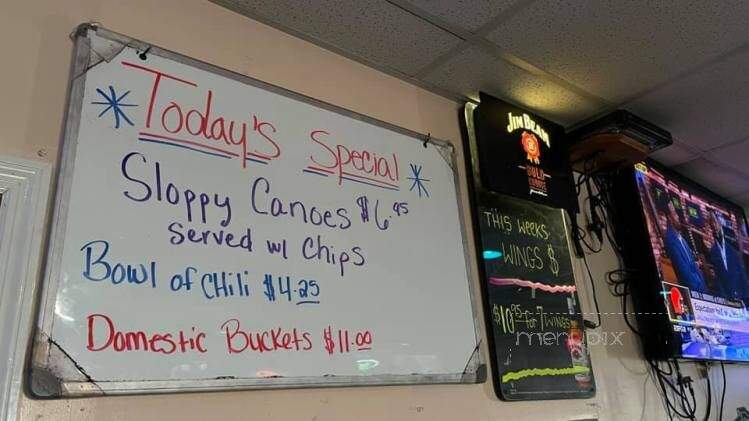 Today's Special
Sloppy Canoes $6.95
served w/ Chips
Bowl of CHili $4.25
Domestic Buckets $11.00
JIM BEAM
THIS WEEKS
WINGS $
$10.95 for 7 WINGS
menupix